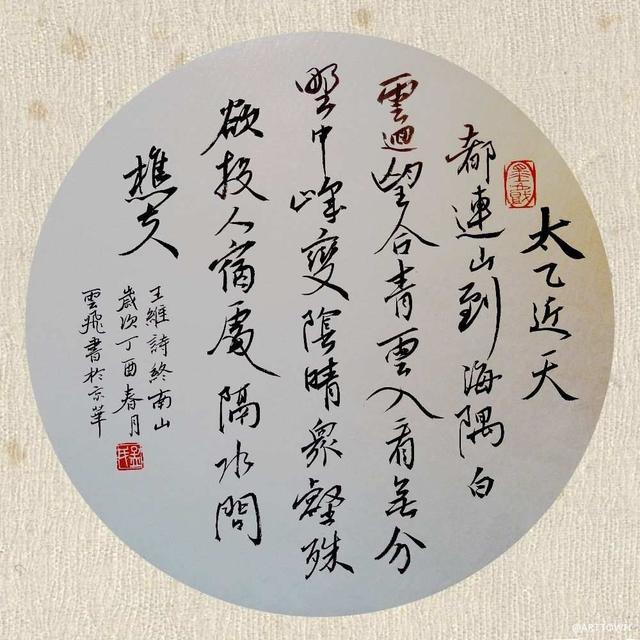 太乙近天
都連山到海隅白
雲迴望合青雲入看無分
野中峰變陰晴眾壑殊
欲投人宿處隔水問
樵夫
王維詩終南山
歲次丁酉春月
雲飛書於京華
@ARTTOWN